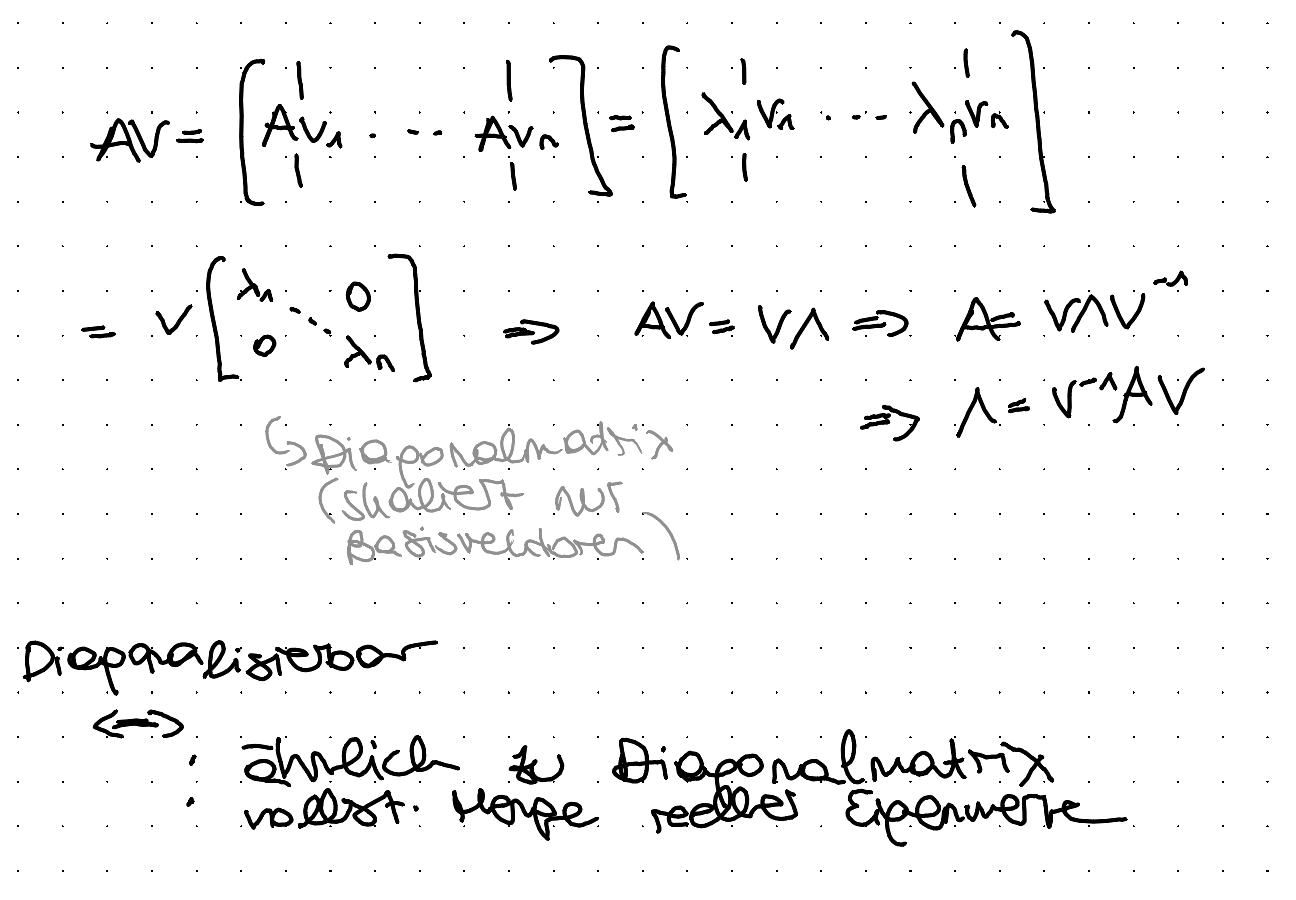 AV = [Av₁ ... Avₙ] = [λ₁v₁ ... λₙvₙ]
= V [λ₁ ⋱ λₙ, 0, 0] ⇒ AV = VΛ ⇒ A = VΛV⁻¹
⇒ Λ = V⁻¹AV
↪ Diagonalmatrix
(skaliert nur
Basisvektoren)
Diagonalisierbar
⟺
· ähnlich zu Diagonalmatrix
· vollst. Menge reeller Eigenwerte